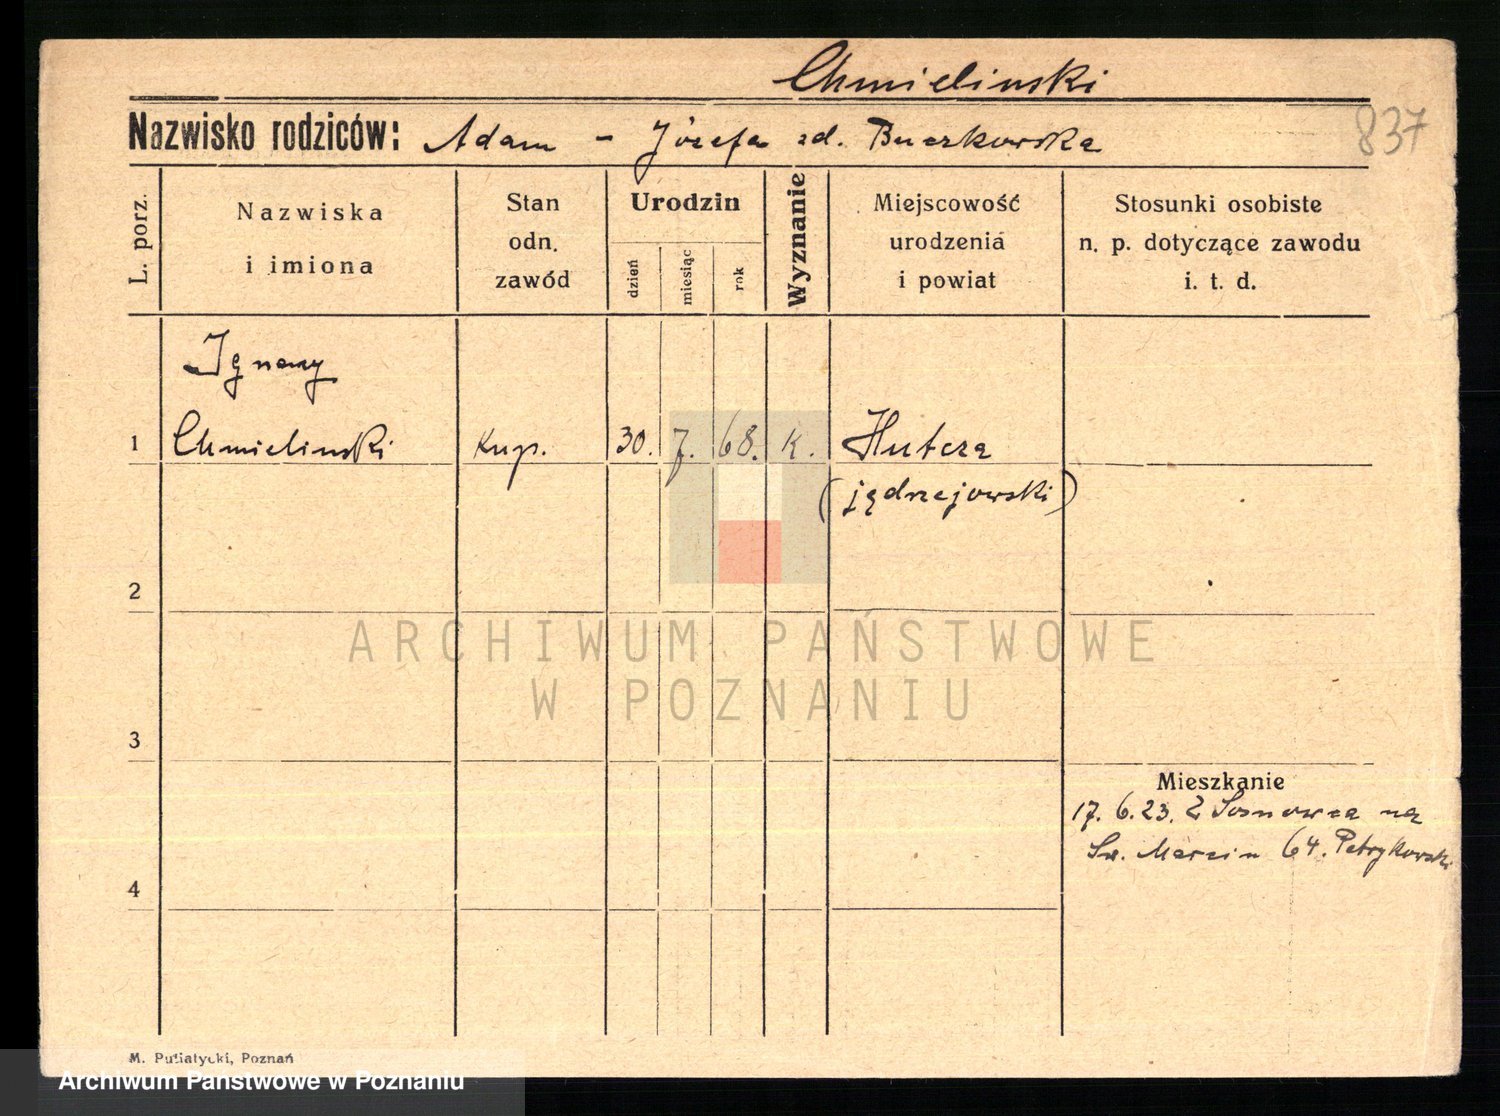 Chmielinski
Nazwisko rodziców: Adam - Józefa zd. Buczkowska
837
L. porz.
Nazwiska
i imiona
Stan
odn.
zawód
Urodzin
dzień
miesiąc
rok
Wyznanie
Miejscowość
urodzenia
i powiat
Stosunki osobiste
n. p. dotyczące zawodu
i. t. d.
Ignacy
1 Chmielinski kup. 30. 7. 68. k. Hutcza
(jędrzejowski)
2
ARCHIWUM PAŃSTWOWE
W POZNANIU
3
Mieszkanie
17. 6. 23. Z Sosnowca na
Św. Marcin 64. Petrykowski
4
M. Putiatycki, Poznań
Archiwum Państwowe w Poznaniu